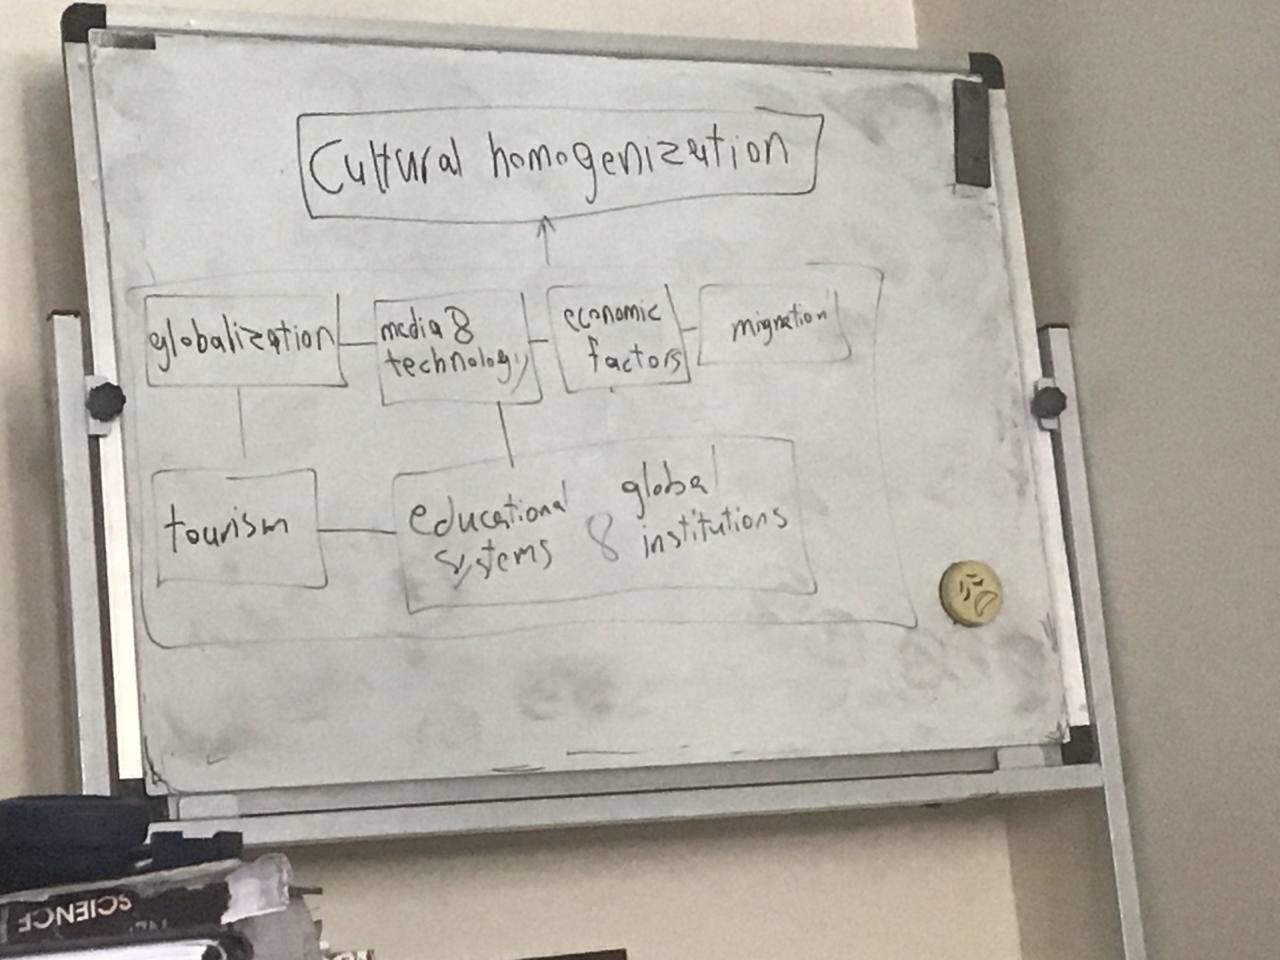 Cultural homogenization
globalization
media &
technology
economic
factors
migration
tourism
educational
systems
&
global
institutions
SCIENCE